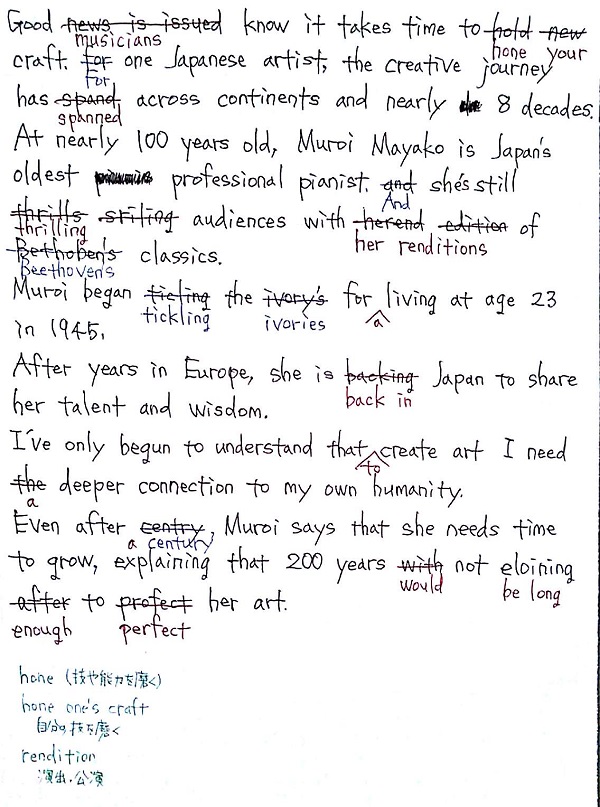 Good news is issued know it takes time to hold new
musicians hone your
craft. for one Japanese artist, the creative journey
For
has spand across continents and nearly 8 decades.
spanned
At nearly 100 years old, Muroi Mayako is Japan's
oldest professional pianist. and she's still
And
thrills sriling audiences with herend edition of
thrilling her renditions
Bethoben's classics.
Beethoven's
Muroi began ticling the ivory's for living at age 23
tickling ivories a
in 1945.
After years in Europe, she is backing Japan to share
back in
her talent and wisdom.
I've only begun to understand that create art I need
to
the deeper connection to my own humanity.
a
Even after centry, Muroi says that she needs time
a century
to grow, explaining that 200 years with not eloining
would be long
after to profect her art.
enough perfect
hone (技や能力を磨く)
hone one's craft
自分の技を磨く
rendition
演出、公演